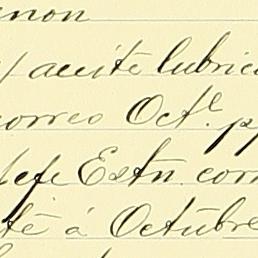 aceite lubric
correo Octe. p
Jefe Estn. corr
té á Octubre